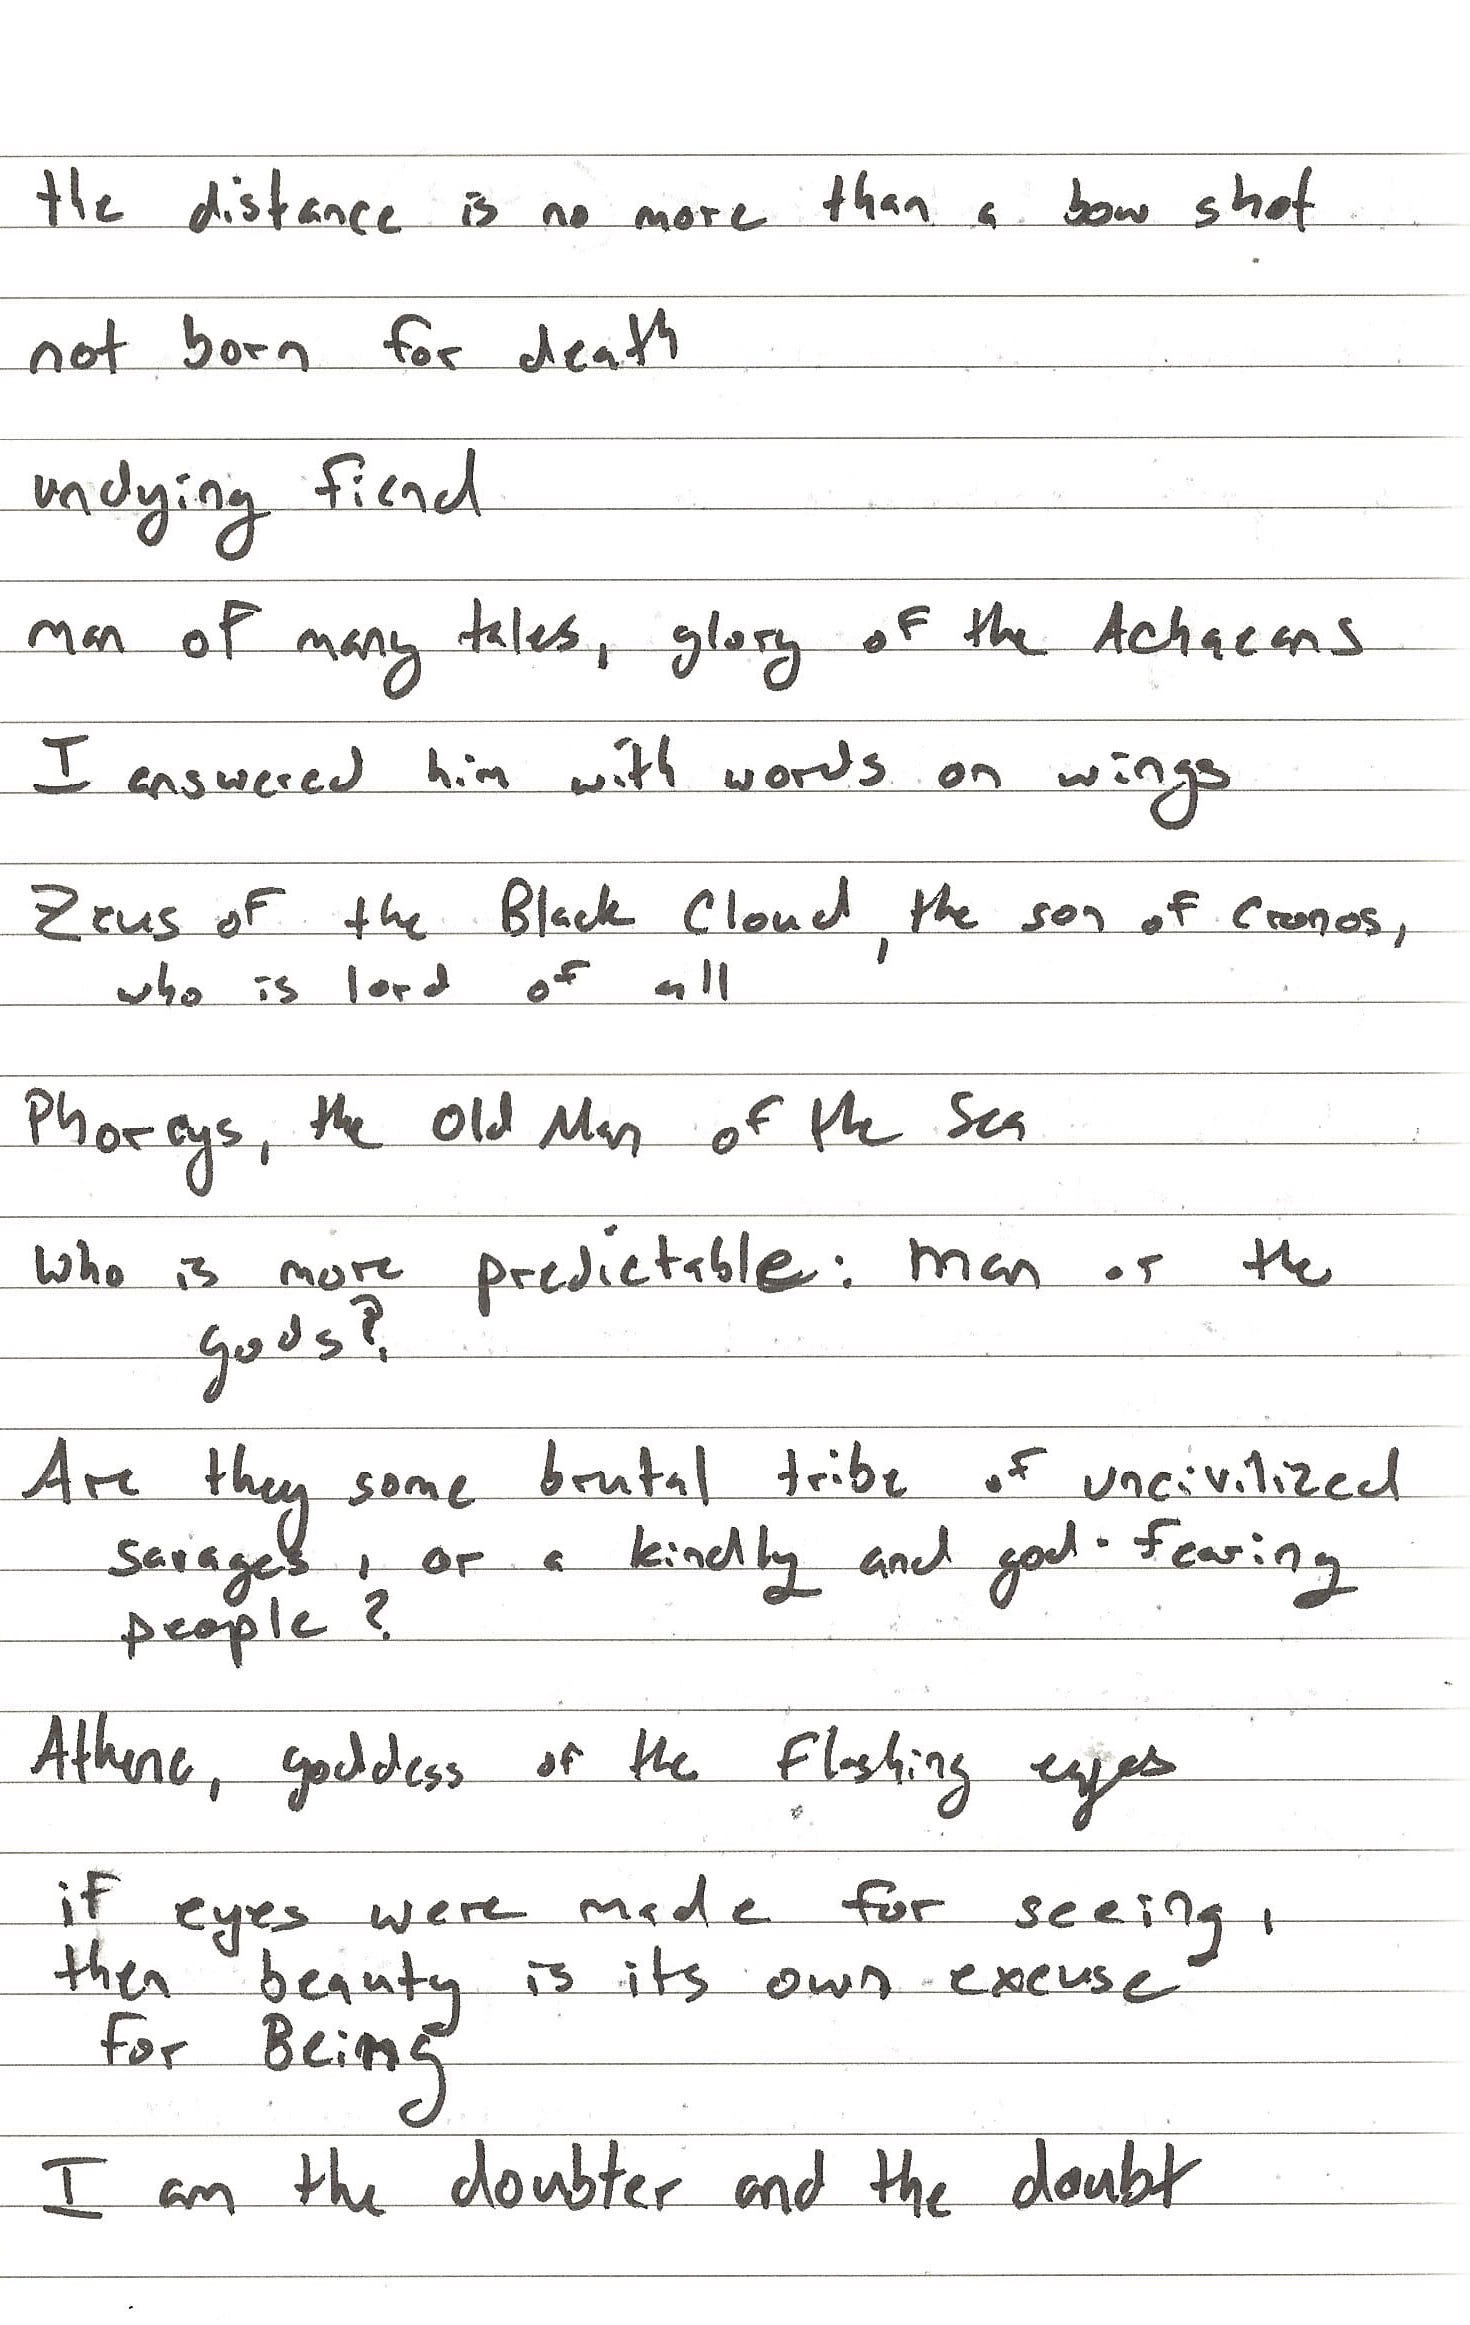 the distance is no more than a bow shot
not born for death
undying fiend
man of many tales, glory of the Achaeans
I answered him with words on wings
Zeus of the Black Cloud, the son of Cronos,
who is lord of all
Phorcys, the Old Man of the Sea
Who is more predictable: man or the
gods?
Are they some brutal tribe of uncivilized
savages, or a kindly and god-fearing
people?
Athene, goddess of the flashing eyes
if eyes were made for seeing,
then beauty is its own excuse
for Being
I am the doubter and the doubt